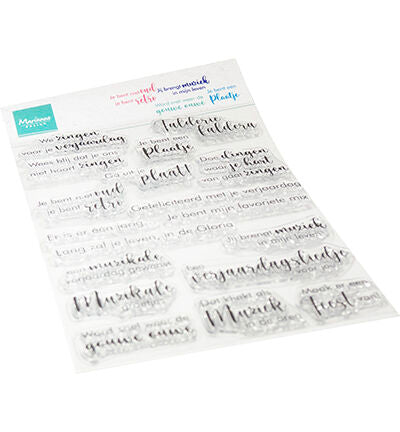 Marianne
DESIGN
Je bent niet oud
je bent retro
Jij brengt muziek
in mijn leven
Word snel weer de
gouwe ouwe
Je bent een
Plaatje
We zingen
voor je verjaardag
Wees blij dat je ons
niet hoort zingen
Falderie
faldera
Je bent een
Plaatje
Ga uit je
plaat!
Doe dingen
waar je hart
van gaat zingen
Je bent niet oud
je bent retro
Gefeliciteerd met je verjaardag
Je bent mijn favoriete mix
Er is er één jarig
Lang zal je leven, in de Gloria
Jij brengt muziek
in mijn leven
Een muzikale
verjaardag gewenst
Een
Verjaardagsliedje
voor jou!
Muzikale
groetjes
Dat klinkt als
Muziek
in de oren
Maak er een
feest van!
Word snel weer de
gouwe ouwe